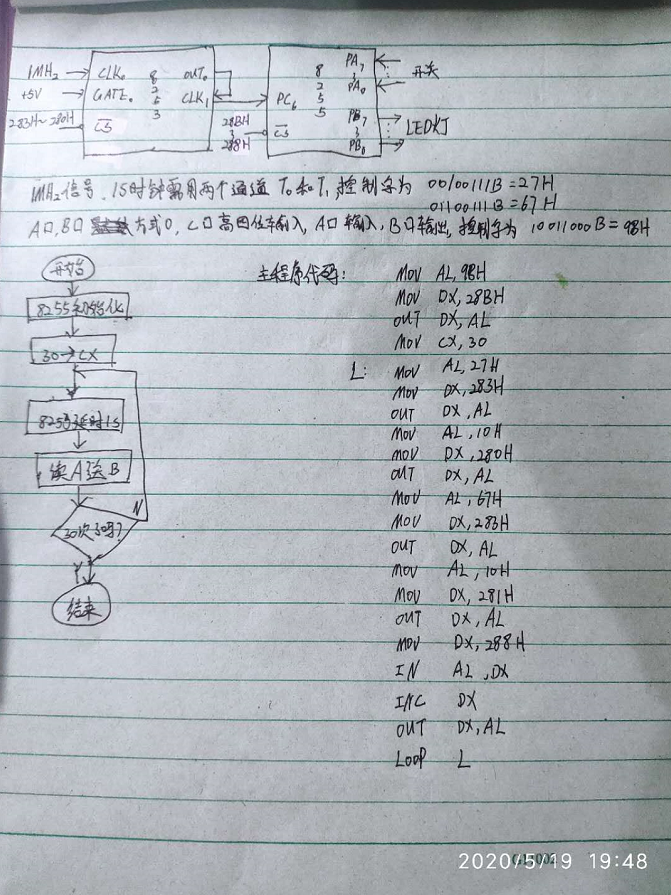 1MHz CLK₀ 8253 OUT₀
+5V GATE₀ CLK₁
283H~280H CS
PA₇ PA₀ 开关
8255 PC₆
28BH 288H CS PB₇ PB₀ LED灯
1MHz信号,1S时钟需用两个通道 T₀和T₁ 控制字为 00100111B=27H
01100111B=67H
A口,B口 方式0,C口高四位输入,A口输入,B口输出,控制字为 10011000B=98H
开始
8255初始化
30→CX
8253延时1s
读A送B
30次了吗?
N
Y
结束
主程序代码:
MOV AL,98H
MOV DX,28BH
OUT DX,AL
MOV CX,30
L: MOV AL,27H
MOV DX,283H
OUT DX,AL
MOV AL,10H
MOV DX,280H
OUT DX,AL
MOV AL,67H
MOV DX,283H
OUT DX,AL
MOV AL,10H
MOV DX,281H
OUT DX,AL
MOV DX,288H
IN AL,DX
INC DX
OUT DX,AL
LOOP L
2020/5/19 19:48